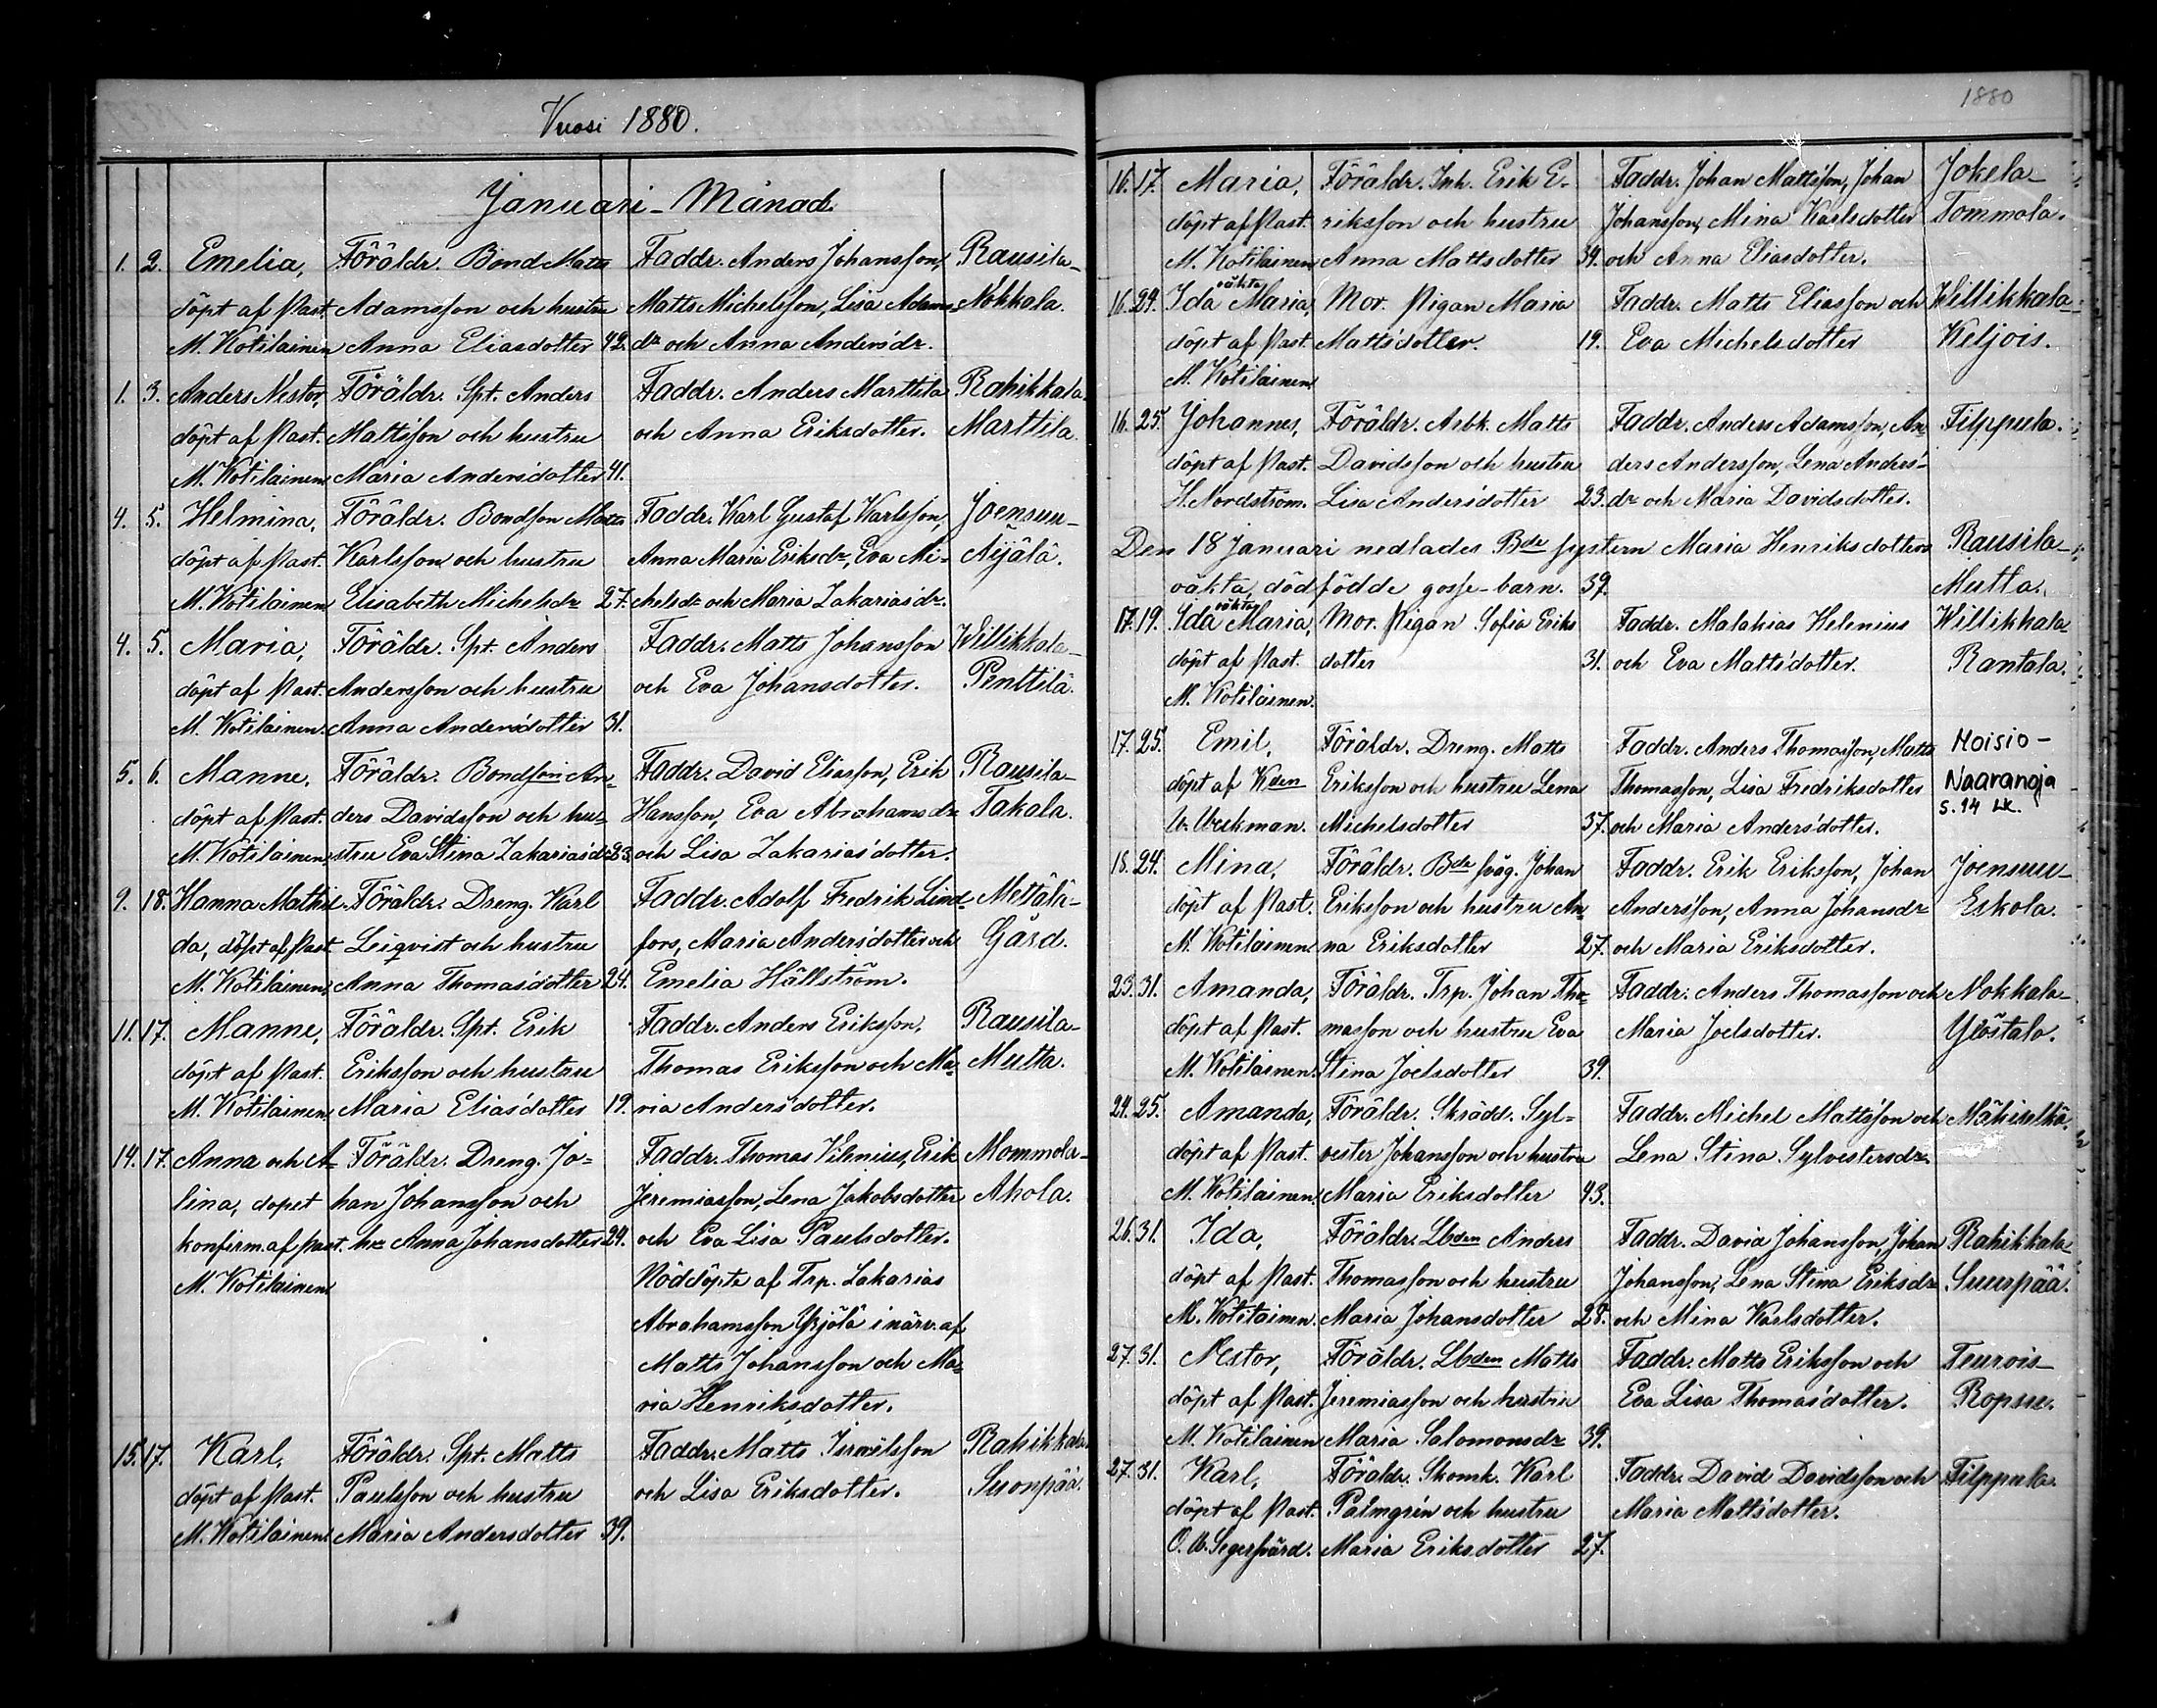 Vuosi 1880.
Januari-Månad.
1. 2. Emelia, Föräldr. Bond Matts Faddr. Anders Johansson, Rausila-
döpt af Past. Adamsson och hustru Matts Michelsson, Lisa Adams- Nokkala.
M. Kotilainen Anna Eliasdotter 42. dr och Anna Andersdr.
1. 3. Anders Nestor, Föräldr. Spt. Anders Faddr. Anders Marttila Rahikkala
döpt af Past. Mattsson och hustru och Anna Eriksdotter. Marttila.
M. Kotilainen Maria Andersdotter 41.
4. 5. Helmina, Föräldr. Bondson Matts Faddr. Karl Gustaf Karlsson, Joensuu-
döpt af Past. Karlsson och hustru Anna Maria Eriksdr, Eva Mi- Äijälä.
M. Kotilainen Elisabeth Michelsdr 27. chelsdr och Maria Zakariasdr.
4. 5. Maria, Föräldr. Spt. Anders Faddr. Matts Johansson Willikkala-
döpt af Past. Andersson och hustru och Eva Johansdotter. Penttilä.
M. Kotilainen. Anna Andersdotter 31.
5. 6. Manne, Föräldr. Bondson An- Faddr. David Eliasson, Erik Rausila-
döpt af Past. ders Davidsson och hu- Hansson, Eva Abrahamsdr Takala.
M. Kotilainen. stru Eva Stina Zakariasdr 23. och Lisa Zakariasdotter.
9. 18. Hanna Mathil- Föräldr. Dreng. Karl Faddr. Adolf Fredrik Lind- Mettälä-
da, döpt af Past. Leiqvist och hustru fors, Maria Andersdotter och Gård.
M. Kotilainen. Anna Thomasdotter 24. Emelia Hällström.
11. 17. Manne, Föräldr. Spt. Erik Faddr. Anders Eriksson, Rausila-
döpt af Past. Eriksson och hustru Thomas Eriksson och Ma- Mutta.
M. Kotilainen. Maria Eliasdotter 19. ria Andersdotter.
14. 17. Anna och A- Föräldr. Dreng. Jo- Faddr. Thomas Vilenius, Erik Mommola-
lina, dopet han Johansson och Jeremiasson, Lena Jakobsdotter Ahola.
konfirm. af Past. hu Anna Johansdotter 24. och Eva Lisa Paulsdotter.
M. Kotilainen Nöddöpta af Trp. Zakarias
Abrahamsson Yrjölä i närv. af
Matts Johansson och Ma-
ria Henriksdotter.
15. 17. Karl, Föräldr. Spt. Matts Faddr. Matts Ismélsson Rahikkala
döpt af Past. Paulsson och hustru och Lisa Eriksdotter. Suonpää.
M. Kotilainen. Maria Andersdotter 39.
1880
16. 17. Maria, Föräldr. Inh. Erik E- Faddr. Johan Mattsson, Johan Jokela-
döpt af Past. riksson och hustru Johansson, Mina Karlsdotter Tommola.
M. Kotilainen Anna Mattsdotter 39. och Anna Eliasdotter.
16. 29. Ida oäkta Maria, Mor. Pigan Maria Faddr. Matts Eliasson och Willikkala-
döpt af Past. Mattsdotter. 19. Eva Michelsdotter Keljois.
M. Kotilainen
16. 25. Johannes, Föräldr. Arbk. Matts Faddr. Anders Adamsson, An- Filppula.
döpt af Past. Davidsson och hustru ders Andersson, Lena Anders-
H. Nordström. Lisa Andersdotter 23. dr och Maria Davidsdotter.
Den 18 Januari nedlades Bdr systern Maria Henriksdotters Rausila-
oäkta, dödfödde gosse-barn. 39. Mutta.
17. 19. Ida oäkta Maria, Mor. Pigan Sofia Eriks Faddr. Malakias Helenius Willikkala-
döpt af Past. dotter 31. och Eva Mattsdotter. Rantala.
M. Kotilainen.
17. 25. Emil, Föräldr. Dreng. Matts Faddr. Anders Thomasson, Matts Moisio-
döpt af Kden Eriksson och hustru Lena Thomasson, Lisa Fredriksdotter Naaranoja
Michelsdotter 37. och Maria Andersdotter. S. 14 LK.
18. 24. Mina, Föräldr. Bdr svåg. Johan Faddr. Erik Eriksson, Johan Joensuu-
döpt af Past. Eriksson och hustru An- Andersson, Anna Johansdr Eskola.
M. Kotilainen. na Eriksdotter 27. och Maria Eriksdotter.
23. 31. Amanda, Föräldr. Trp. Johan Tho- Faddr. Anders Thomasson och Nokkala-
döpt af Past. masson och hustru Eva Maria Joelsdotter. Ylöstalo.
M. Kotilainen. Stina Joelsdotter 39.
24. 25. Amanda, Föräldr. Skrädd. Syl- Faddr. Michel Mattsson och Mäkiselkä.
döpt af Past. vester Johansson och hustru Lena Stina Sylvestersdr.
M. Kotilainen. Maria Eriksdotter 43.
26. 31. Ida, Föräldr. Lbden Anders Faddr. David Johansson, Johan Rahikkala-
döpt af Past. Thomasson och hustru Johansson, Lena Stina Eriksdr Suurpää.
M. Kotilainen. Maria Johansdotter 28. och Mina Karlsdotter.
27. 31. Nestor, Föräldr. Lbden Matts Faddr. Matts Eriksson och Teurois-
döpt af Past. Jeremiasson och hustru Eva Lisa Thomasdotter. Ropsu.
M. Kotilainen Maria Salomonsdr 39.
27. 31. Karl, Föräldr. Skomk. Karl Faddr. David Davidsson och Filppula.
döpt af Past. Palmgrén och hustru Maria Mattsdotter.
O. W. Segersvärd. Maria Eriksdotter 27.